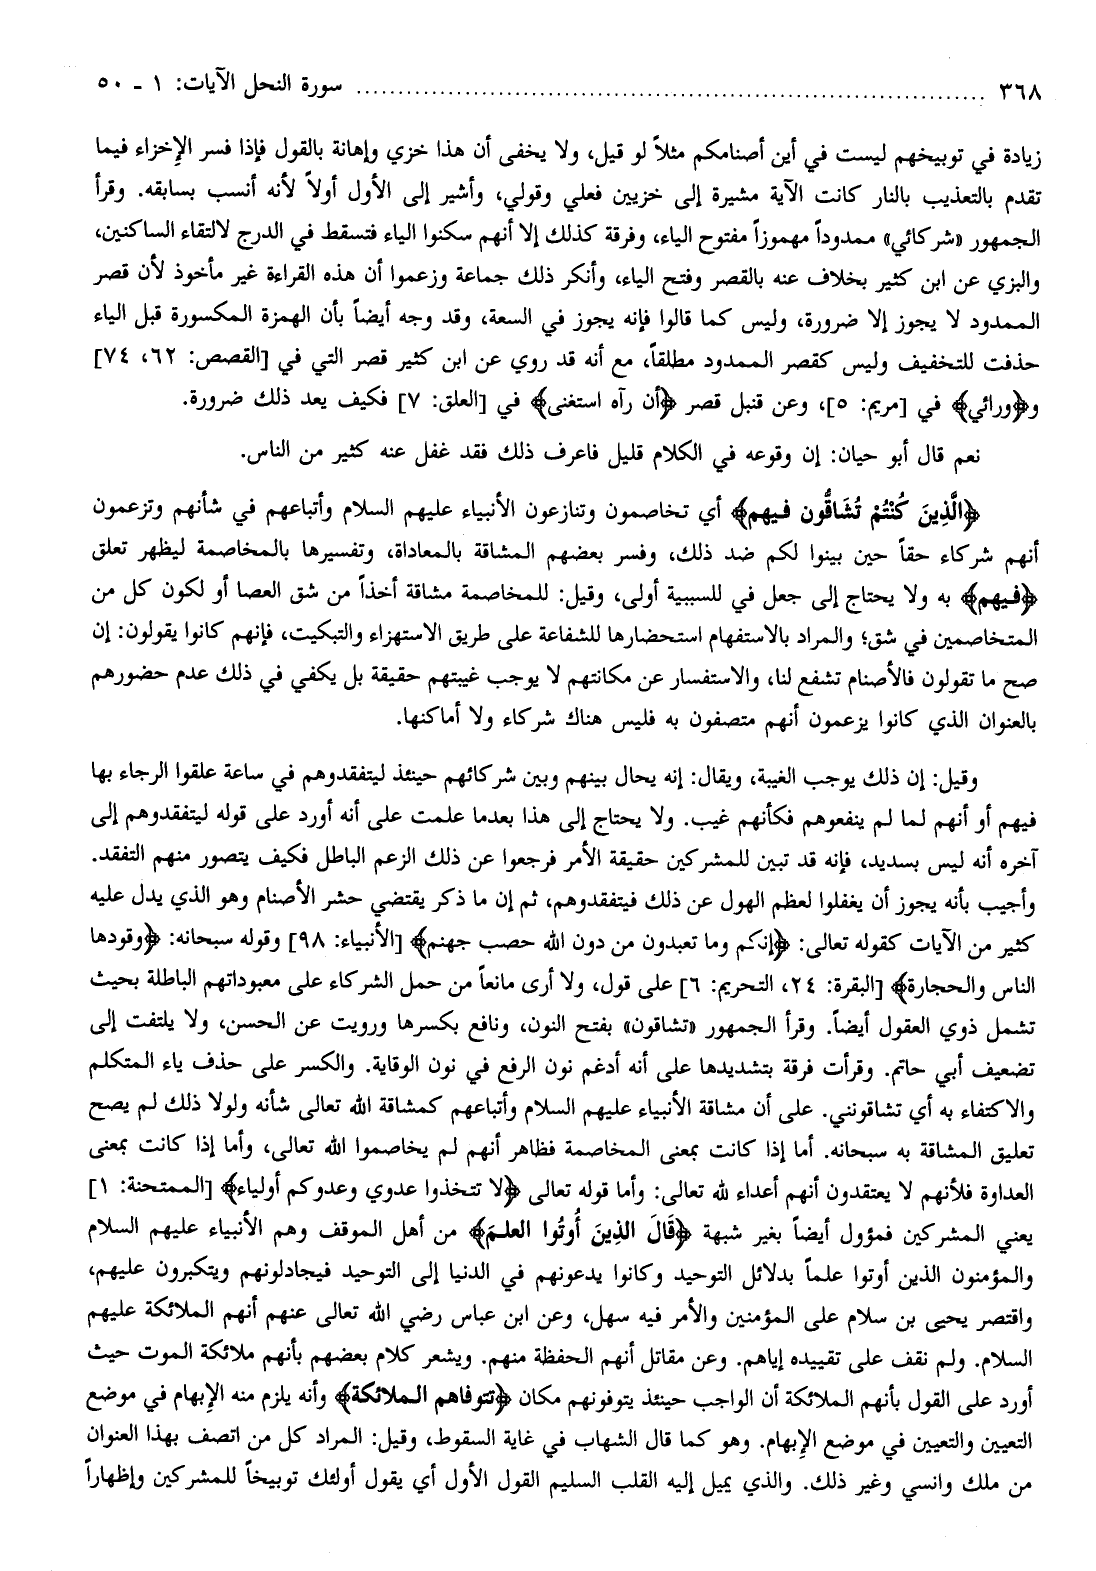 ٣٦٨ ........................................................ سورة النحل الآيات: ١ ـ ٥٠
زيادة في توبيخهم ليست في أين أصنامكم مثلاً لو قيل، ولا يخفى أن هذا خزي وإهانة بالقول فإذا فسر الإخزاء فيما
تقدم بالتعذيب بالنار كانت الآية مشيرة إلى خزيين فعلي وقولي، وأشير إلى الأول أولاً لأنه أنسب بسابقه. وقرأ
الجمهور «شركائي» ممدوداً مهموزاً مفتوح الياء، وفرقة كذلك إلا أنهم سكنوا الياء فتسقط في الدرج لالتقاء الساكنين،
والبزي عن ابن كثير بخلاف عنه بالقصر وفتح الياء، وأنكر ذلك جماعة وزعموا أن هذه القراءة غير مأخوذ لأن قصر
الممدود لا يجوز إلا ضرورة، وليس كما قالوا فإنه يجوز في السعة، وقد وجه أيضاً بأن الهمزة المكسورة قبل الياء
حذفت للتخفيف وليس كقصر الممدود مطلقاً، مع أنه قد روي عن ابن كثير قصر التي في [القصص: ٦٢، ٧٤]
و﴿ورائي﴾ في [مريم: ٥]، وعن قنبل قصر ﴿أن رآه استغنى﴾ في [العلق: ٧] فكيف يعد ذلك ضرورة.
نعم قال أبو حيان: إن وقوعه في الكلام قليل فاعرف ذلك فقد غفل عنه كثير من الناس.
﴿الَّذِينَ كُنْتُمْ تُشَاقُّون فيهم﴾ أي تخاصمون وتنازعون الأنبياء عليهم السلام وأتباعهم في شأنهم وتزعمون
أنهم شركاء حقاً حين بينوا لكم ضد ذلك، وفسر بعضهم المشاقة بالمعاداة، وتفسيرها بالمخاصمة ليظهر تعلق
﴿فيهم﴾ به ولا يحتاج إلى جعل في للسببية أولى، وقيل: للمخاصمة مشاقة أخذاً من شق العصا أو لكون كل من
المتخاصمين في شق؛ والمراد بالاستفهام استحضارها للشفاعة على طريق الاستهزاء والتبكيت، فإنهم كانوا يقولون: إن
صح ما تقولون فالأصنام تشفع لنا، والاستفسار عن مكانتهم لا يوجب غيبتهم حقيقة بل يكفي في ذلك عدم حضورهم
بالعنوان الذي كانوا يزعمون أنهم متصفون به فليس هناك شركاء ولا أماكنها.
وقيل: إن ذلك يوجب الغيبة، ويقال: إنه يحال بينهم وبين شركائهم حينئذ ليتفقدوهم في ساعة علقوا الرجاء بها
فيهم أو أنهم لما لم ينفعوهم فكأنهم غيب. ولا يحتاج إلى هذا بعدما علمت على أنه أورد على قوله ليتفقدوهم إلى
آخره أنه ليس بسديد، فإنه قد تبين للمشركين حقيقة الأمر فرجعوا عن ذلك الزعم الباطل فكيف يتصور منهم التفقد.
وأجيب بأنه يجوز أن يغفلوا لعظم الهول عن ذلك فيتفقدوهم، ثم إن ما ذكر يقتضي حشر الأصنام وهو الذي يدل عليه
كثير من الآيات كقوله تعالى: ﴿إنكم وما تعبدون من دون الله حصب جهنم﴾ [الأنبياء: ٩٨] وقوله سبحانه: ﴿وقودها
الناس والحجارة﴾ [البقرة: ٢٤، التحريم: ٦] على قول، ولا أرى مانعاً من حمل الشركاء على معبوداتهم الباطلة بحيث
تشمل ذوي العقول أيضاً. وقرأ الجمهور «تشاقون» بفتح النون، ونافع بكسرها ورويت عن الحسن، ولا يلتفت إلى
تضعيف أبي حاتم. وقرأت فرقة بتشديدها على أنه أدغم نون الرفع في نون الوقاية. والكسر على حذف ياء المتكلم
والاكتفاء به أي تشاقونني. على أن مشاقة الأنبياء عليهم السلام وأتباعهم كمشاقة الله تعالى شأنه ولولا ذلك لم يصح
تعليق المشاقة به سبحانه. أما إذا كانت بمعنى المخاصمة فظاهر أنهم لم يخاصموا الله تعالى، وأما إذا كانت بمعنى
العداوة فلأنهم لا يعتقدون أنهم أعداء لله تعالى: وأما قوله تعالى ﴿لا تتخذوا عدوي وعدوكم أولياء﴾ [الممتحنة: ١]
يعني المشركين فمؤول أيضاً بغير شبهة ﴿قَالَ الذِينَ أُوتُوا العلمَ﴾ من أهل الموقف وهم الأنبياء عليهم السلام
والمؤمنون الذين أوتوا علماً بدلائل التوحيد وكانوا يدعونهم في الدنيا إلى التوحيد فيجادلونهم ويتكبرون عليهم،
واقتصر يحيى بن سلام على المؤمنين والأمر فيه سهل، وعن ابن عباس رضي الله تعالى عنهم أنهم الملائكة عليهم
السلام. ولم نقف على تقييده إياهم. وعن مقاتل أنهم الحفظة منهم. ويشعر كلام بعضهم بأنهم ملائكة الموت حيث
أورد على القول بأنهم الملائكة أن الواجب حينئذ يتوفونهم مكان ﴿تتوفاهم الملائكة﴾ وأنه يلزم منه الإبهام في موضع
التعيين والتعيين في موضع الإبهام. وهو كما قال الشهاب في غاية السقوط، وقيل: المراد كل من اتصف بهذا العنوان
من ملك وانسي وغير ذلك. والذي يميل إليه القلب السليم القول الأول أي يقول أولئك توبيخاً للمشركين وإظهاراً